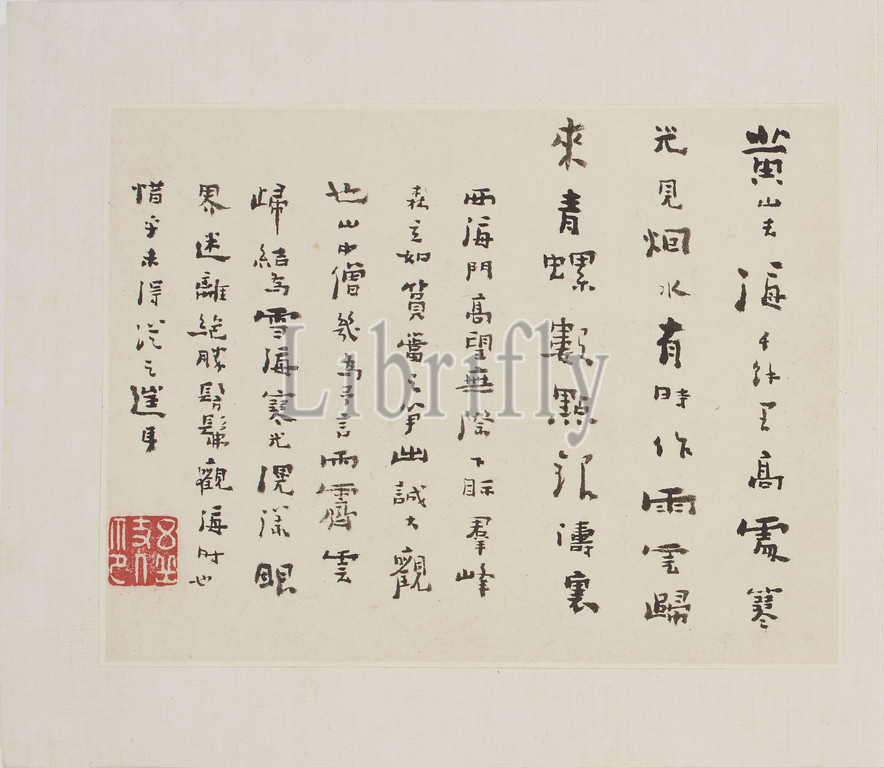 黄山去海千餘里高處寒
光見烟水有時作雨雲歸
來青螺數點銀濤裏
西海門高望無際下眎羣峰
森立如篔簹之筍出誠大觀
也山中僧幾為予言雨霽雲
歸結為雪海寒光滉漾眼
界迷離絶勝髣髴觀海時也
惜乎未得從之耳
Librifly